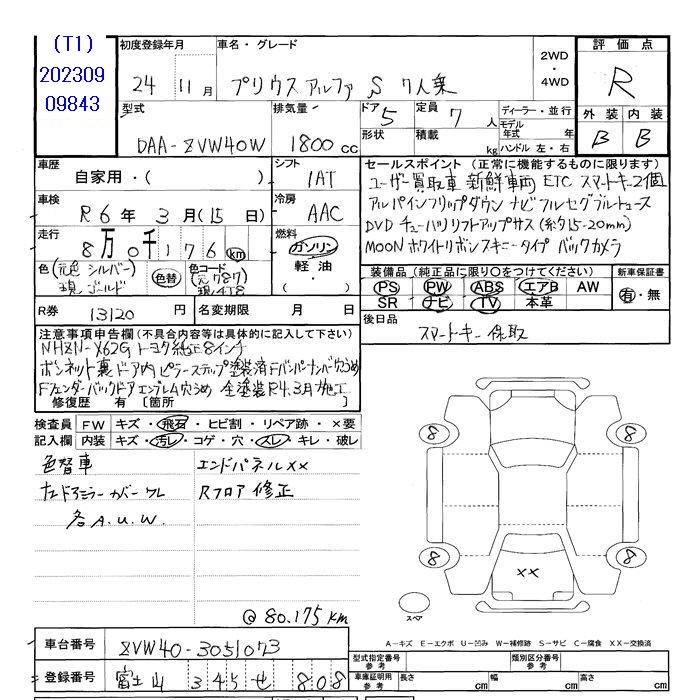 (T1)
202309
09843
初度登録年月
24 11月
車名・グレード
プリウス アルファ S 7人乗
2WD
・
4WD
評価点
R
外装 内装
B B
型式
DAA-ZVW40W
排気量
1800cc
ドア 5
形状
定員 7 人
積載 kg
ディーラー・並行
モデル
年式 年
ハンドル 左・右
車歴
自家用・( )
シフト
IAT
車検
R6年 3月(15日)
冷房
AAC
走行
8万0千176 km
燃料
ガソリン
軽油
色(元色 シルバー)
現 ゴールド
色替
色コード
(元 787)
現 4T8
R券 13120円
名変期限 月 日
セールスポイント (正常に機能するものに限ります)
ユーザー買取車 新鮮車両 ETC スマートキー2個
アルパインフリップダウン ナビ フルセグ ブルトゥース
DVD チューハリリフトアップサス(約15-20mm)
MOON ホワイトリボンスキータイプ バックカメラ
装備品(純正品に限り〇をつけてください)
新車保証書
PS PW ABS エアB AW
SR ナビ TV 本革
有・無
後日品
スマートキー 保取
注意事項申告欄(不具合内容等は具体的に記入して下さい)
NHZN-X62G トヨタ純正8インチ
ボンネット裏ドア内ピラーステップ塗装済Fバンパーナンバー穴うめ
Fフェンダーバックドアエンブレム穴うめ 全塗装R4.3月施工
修復歴 有 [箇所
検査員
記入欄
FW キズ・飛石・ヒビ割・リペア跡・×要
内装 キズ・汚レ・コゲ・穴・スレ・キレ・破レ
色替車
エンドパネルXX
左ドアミラーカバーワレ
Rフロア修正
各A.U.W.
@80.175km
8 8
8 8
XX
スペア
A-キズ E-エクボ U-凹み W-補修跡 S-サビ C-腐食 XX-交換済
車台番号 ZVW40-3051073
登録番号 富士山 345 せ 808
型式指定番号
参考
類別区分番号
参考
車庫証明用
参考
長さ cm
幅 cm
高さ cm